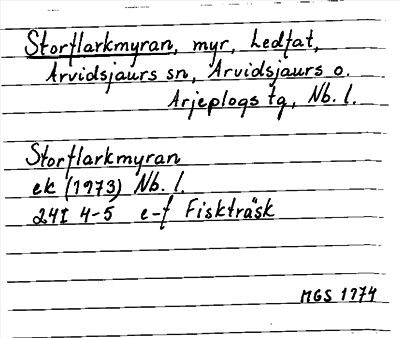 Storflarkmyran, myr, Ledfat,
Arvidsjaurs sn, Arvidsjaurs o.
Arjeplogs tg, Nb. l.
Storflarkmyran
ek (1973) Nb. l.
24I 4-5 e-f Fiskträsk
MGS 1974